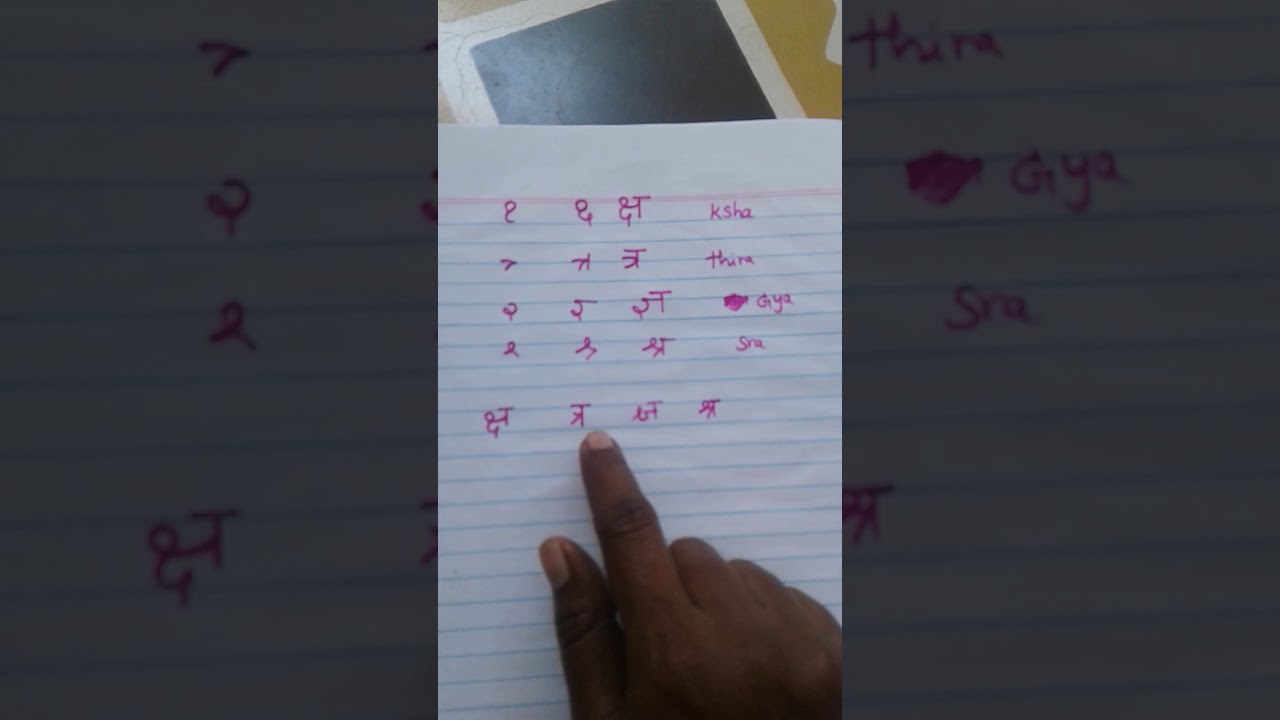 क्ष ksha
त्र thira
ज्ञ Gya
श्र Sra
क्ष त्र ज्ञ श्र